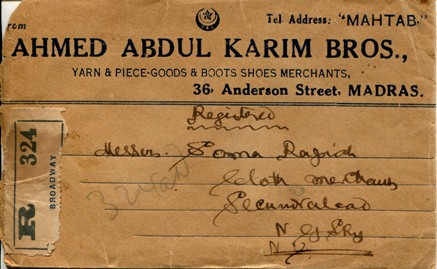 From
Tel. Address: "MAHTAB"
AHMED ABDUL KARIM BROS.,
YARN & PIECE-GOODS & BOOTS SHOES MERCHANTS,
36, Anderson Street, MADRAS.
Registered
Messrs.
Cloth merchants
Secunderabad
R 324
BROADWAY